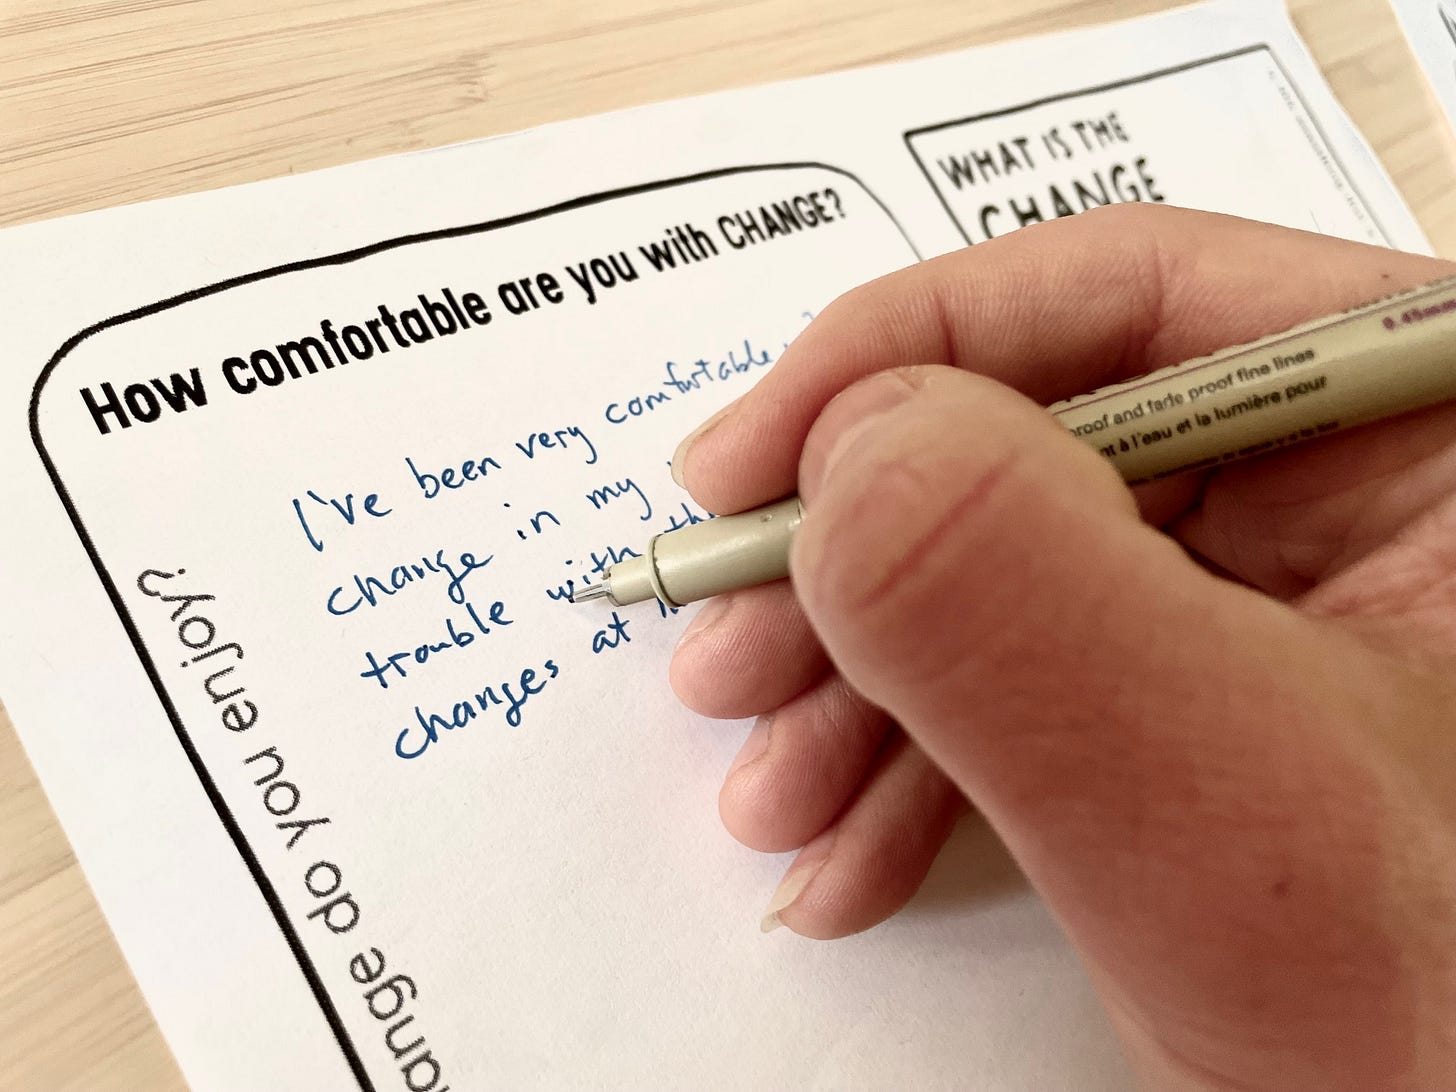 How comfortable are you with CHANGE?
I've been very comfortable
change in my
trouble with
changes at
change do you enjoy?
WHAT IS THE
CHANGE
0.45mm
proof and fade proof fine lines
à l'eau et la lumière pour